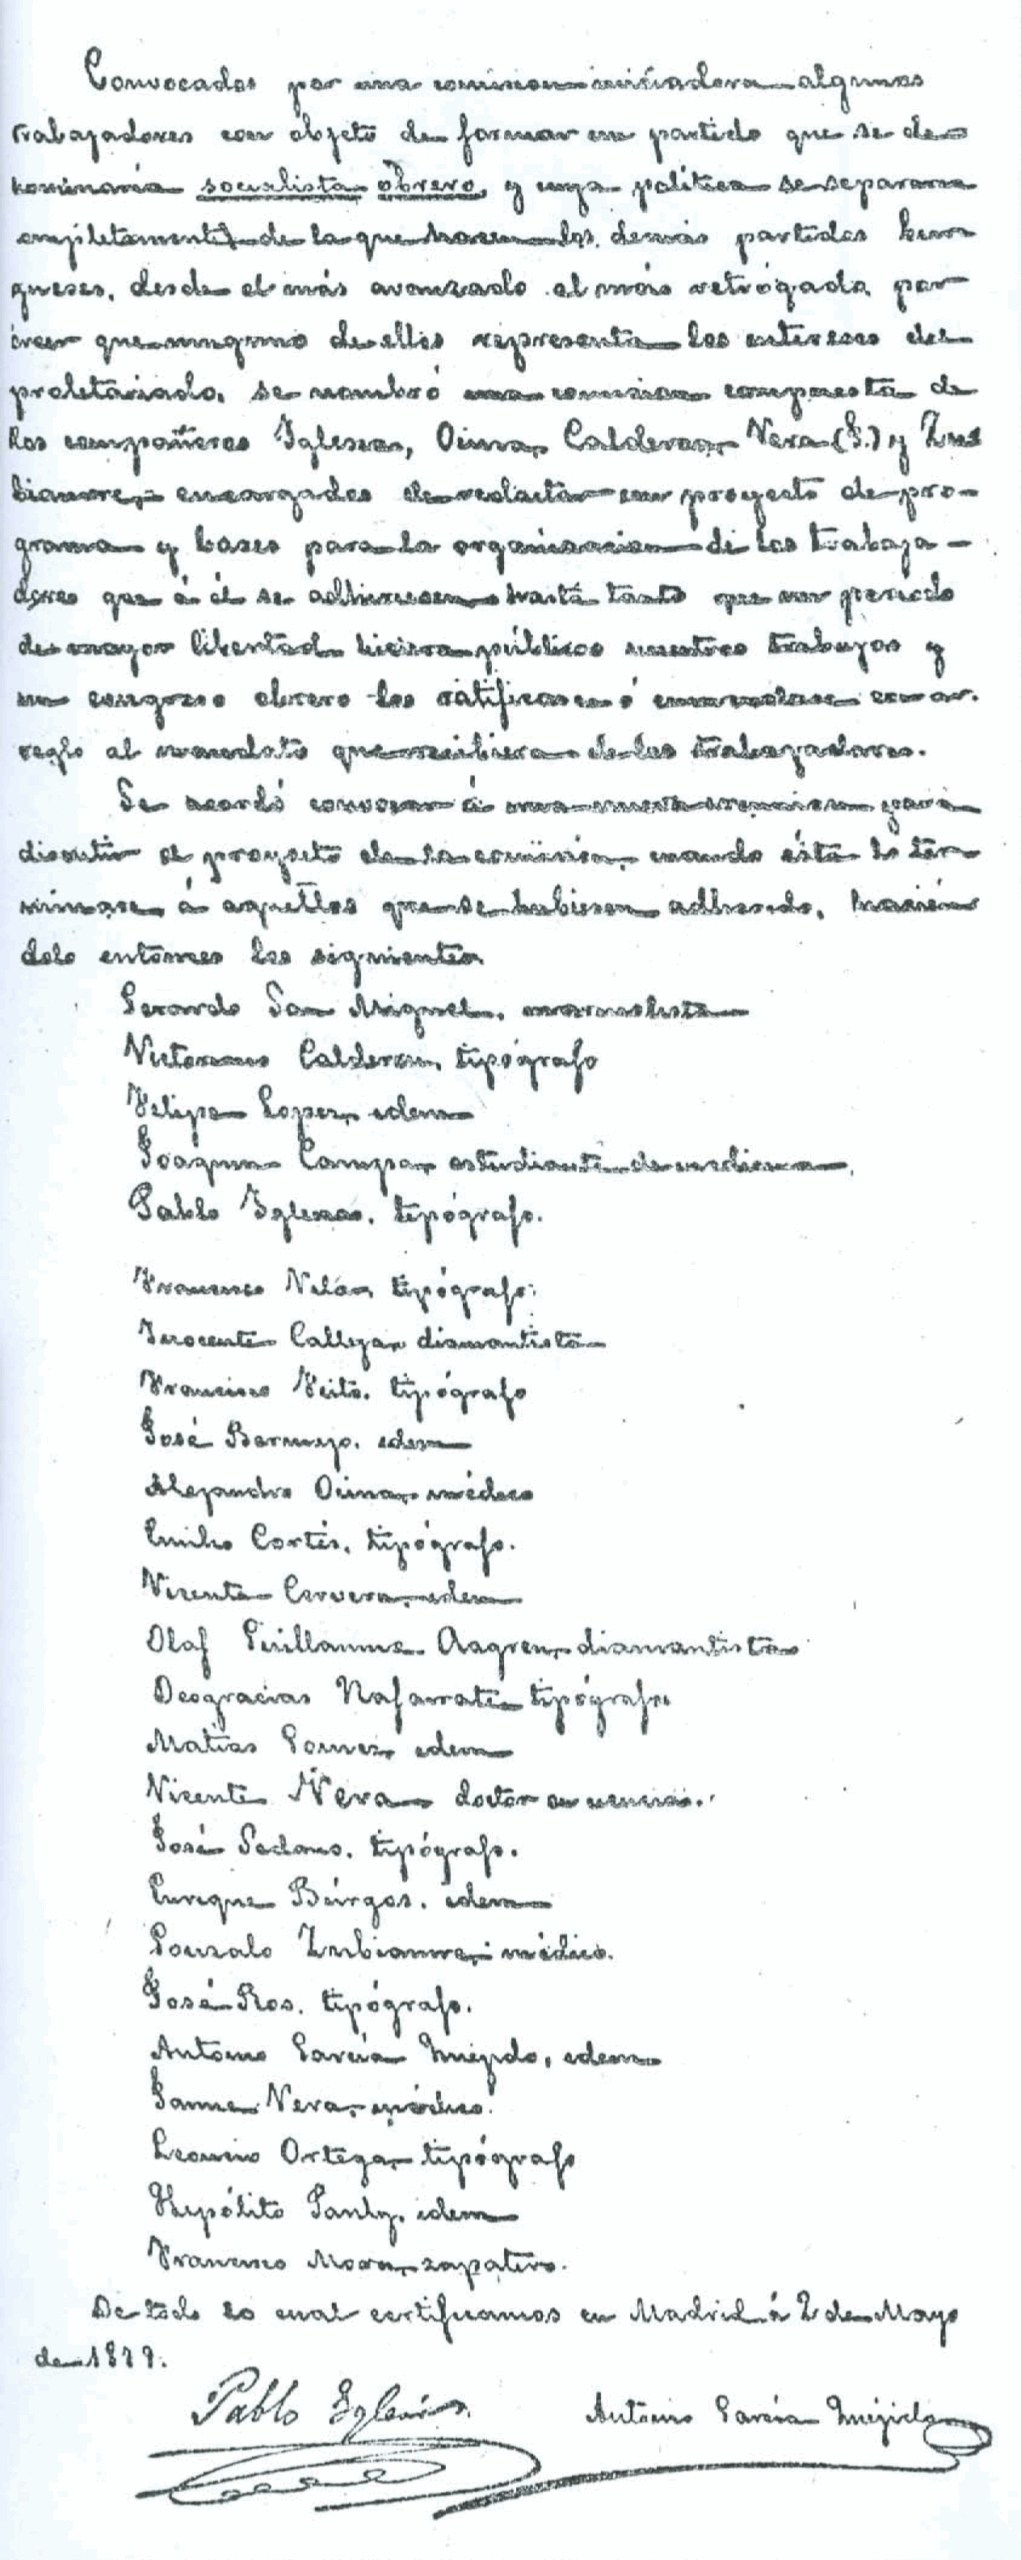 Convocados por una comision iniciadora algunos
trabajadores con objeto de formar un partido que se de-
nominaría socialista obrero, y cuya política se separara
completamente de la que hacen los demás partidos bur-
gueses, desde el más avanzado al más retrógado, por
creer que ninguno de ellos representa los intereses del
proletariado, se nombró una comision compuesta de
los compañeros Iglesias, Ocina, Calderon, Vera (J.) y Zu-
biaurre, encargados de redactar un proyecto de pro-
grama y bases para la organizacion de los trabaja-
dores que á él se adhiriesen hasta tanto que un periodo
de mayor libertad hiciera públicos nuestros trabajos y
un congreso obrero los ratificase ó enmendase con ar-
reglo al mandato que recibiera de los trabajadores.
Se acordó convocar á una nueva reunion para
discutir el proyecto de la comision, cuando ésta lo ter-
minase, á aquellos que se hubiesen adherido, hacién-
dolo entónces los siguientes
Gerardo San Miguel, marmolista
Victoriano Calderon, tipógrafo
Felipe Lopez, idem
Joaquin Campa, estudiante de medicina.
Pablo Iglesias, tipógrafo.
Francisco Nilón, tipógrafo.
Inocente Calleja, diamantista
Francisco Feito, tipógrafo
José Bermejo, idem
Alejandro Ocina, médico
Emilio Cortés, tipógrafo.
Vicente Cervera, idem
Olaf Guillaume Aagren, diamantista
Deogracias Nafarrate, tipógrafo
Matias Gomez, idem
Vicente Vera, doctor en ciencias.
José Sedano, tipógrafo.
Enrique Búrgos, idem
Gonzalo Zubiaurre, médico.
José Ros, tipógrafo.
Antonio García Quejido, idem
Jaime Vera, médico.
Leoncio Ortega, tipógrafo
Hipólito Pauly, idem
Francisco Mora, zapatero.
De todo lo cual certificamos en Madrid á 2 de Mayo
de 1879.
Pablo Iglesias Antonio García Quejido